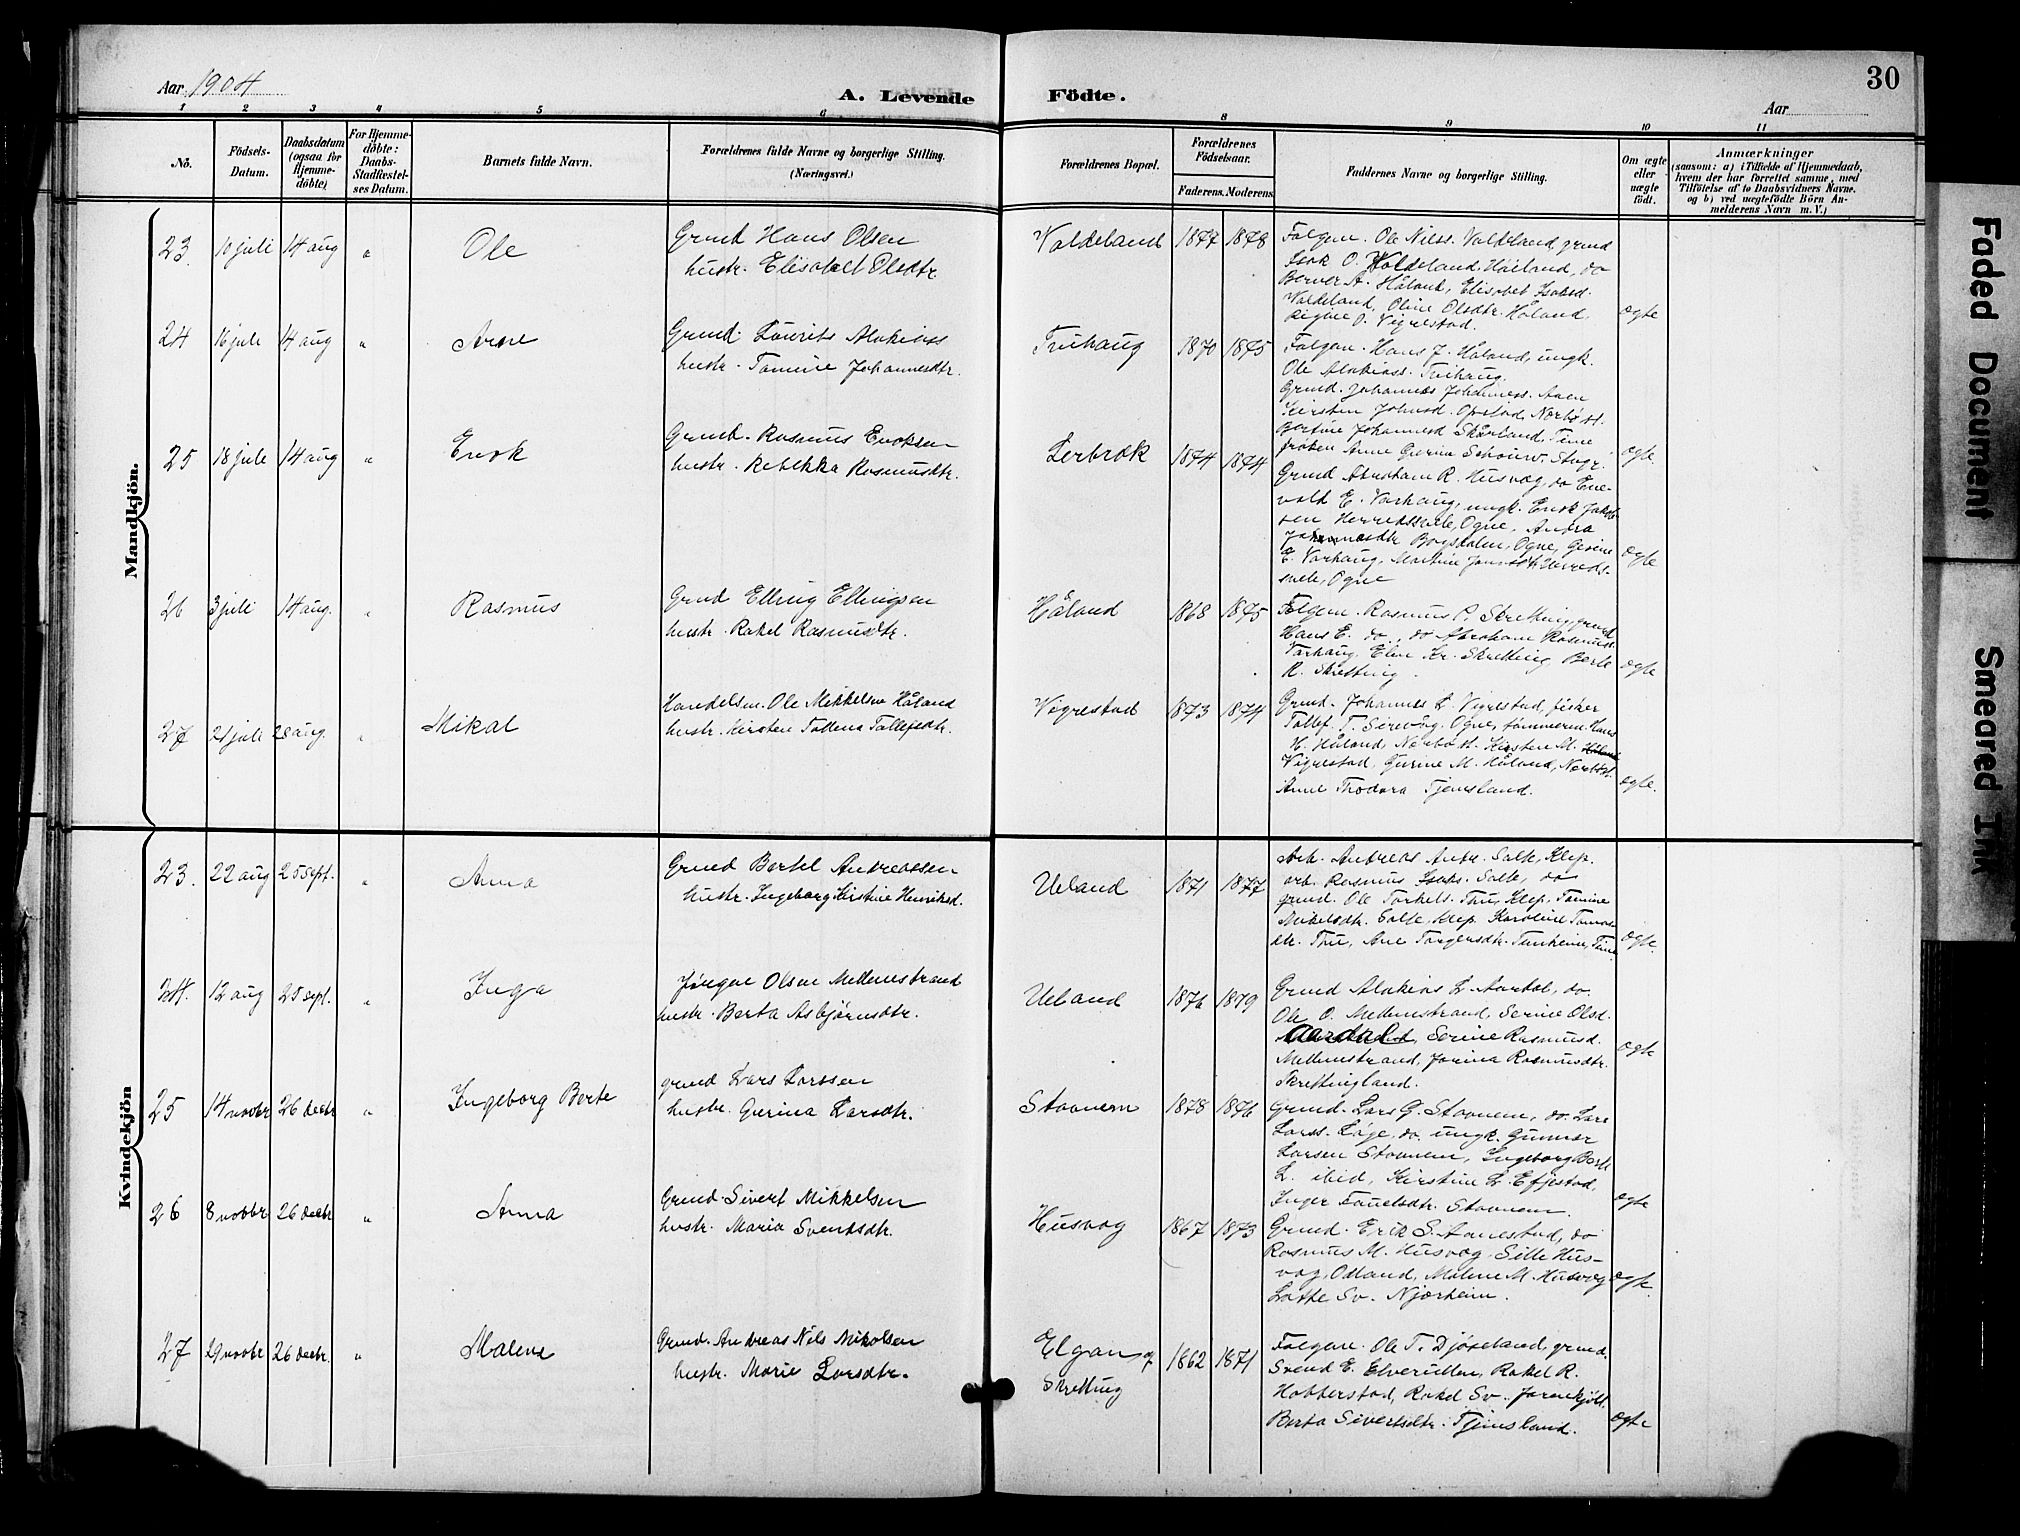 Aar 1904
A. Levende
Födte.
30
Aar
1 2 3 4 5 6 8 9 10 11
No.
Födsels-
Datum.
Daabsdatum
(ogsaa for
Hjemme-
döbte)
For Hjemme-
döbte:
Daabs-
Stadfæstel-
ses Datum.
Barnets fulde Navn.
Forældrenes fulde Navne og borgerlige Stilling.
(Næringsvei.)
Forældrenes Bopæl.
Forældrenes
Födselsaar.
Faderens. Moderens.
Faddernes Navne og borgerlige Stilling.
Om ægte
eller
uægte
födt.
Anmærkninger
(saasom: a) i Tilfælde af Hjemmedaab,
hvem der har forrettet samme, med
Tilföielse af to Daabsvidners Navne.
og b) ved uægtefödte Börn An-
melderens Navn m. V.)
Mandkjön.
23 10 juli 14 aug " Ole
Grmd Hans Olsen
hustr. Elisabet Olsdtr
Valdeland 1877 1878
Folgem. Ole Nilss. Valdeland, grmd
Isak O. Valdeland, Håland, do
Berver A. Håland, Elisabet Isaksd.
Valdeland, Oline Olsdtr. Håland,
Regine O. Vigrestad.
ægte
24 16 juli 14 aug " Arne
Grmd. Laurits Alakiass
hustr. Tomine Johannesdtr.
Tuihaug 1870 1875
Folgem. Hans J. Håland, ungk.
Ole Alakiass. Tuihaug
Grmd. Johannes Johanness. Aaen
Kirsten Johnsd. Opstad, Nærbø st.
Bertine Johannesd Skårland, Time
frøken Anne Gurina Schouw, Stvgr.
ægte.
25 18 juli 14 aug " Enok
Grmd. Rasmus Enoksen
hustr. Rebekka Rasmusdtr.
Lerbræk 1874 1874
Grmd Abraham R. Husvæg, do Ene-
vald E. Varhaug, ungk. Enok Jakob-
sen Herredsvele, Ogne, Andra
Johannesdtr Bogsdalen, Ogne, Gesine
E. Varhaug, Martine Jonasdtr. Herreds-
vele, Ogne
ægte
26 3 juli 14 aug. " Rasmus
Grmd Elling Ellingsen
hustr. Rakel Rasmusdtr.
Håland 1868 1875
Folgem. Rasmus P. Skretting, grmd
Hans E. do, do Abraham Rasmuss.
Varhaug, Elen Kr. Skretting, Berte
R. Skretting.
ægte
27 21 juli 28 aug. " Mikal
Handelsm. Ole Mikkelsen Håland
hustr. Kirsten Tallena Tallefsdtr.
Vigrestad 1873 1874
Grmd. Johannes L. Vigrestad, fisker
Tallef. T. Sirevåg, Ogne, tømmerm. Hans
H. Håland, Nærbø st. Kirsten M. Håland
Vigrestad, Gurine M. Håland, Nærbø st.
Anne Thodora Tjemsland.
ægte.
Kvindekjön
23. 22 aug 25 sept. " Anna
Grmd Bertel Andreassen
hustr. Ingeborg Kirstine Henriksd.
Ueland 1871 1877
Arb. Andreas Andr. Salte, Klep.
arb. Rasmus Isaks. Salte, do
grmd. Ole Torkels. Thu, Klep, Tomine
Mikelsdtr. Salte, Klep. Karoline Tomas
dtr. Thu, Ane Torgersdtr. Tunheim, Time
ægte.
24. 12 aug 25 sept. " Inga
Jørgen Olsen Mellemstrand
hustr. Berta Asbjørnsdtr.
Ueland 1876 1879
Grmd Alakias L. Aardal, do.
Ole O. Mellemstrand, Serine Olsd.
Aardal, Serine Rasmusd.
Mellemstrand, Jorina Rasmusdtr.
Skrettingland.
ægte
25 14 novbr 26 decbr " Ingeborg Berte
grmd Lars Larssen
hustr. Gurina Larsdtr.
Stavnem 1878 1876
Grmd. Lars G. Stavnem, do. Lars
Larss. Låge, do. ungk. Gunnar
Larsen Stavnem, Ingeborg Berte
L. ibid, Kirstine L. Efjestad,
Inger Tanetsdtr. Stavnem.
ægte
26 8 novbr 26 decbr " Anna
Grmd. Sivert Mikkelsen
hustr. Maria Svendsdtr.
Husvæg 1867 1873
Grmd. Erik S. Aanestad, do
Rasmus M. Husvæg, Sille Hus-
væg, Odland, Malene M. Husvæg
Lothe Sv. Njærheim.
ægte.
27 29 novbr 26 decbr. " Malene
Grmd. Andreas Nils Nikolsen
hustr. Marie Larsdtr.
Elgan, og
Skretting
1862 1871
Folgem. Ole T. Djøseland, grmd.
Svend E. Elverullen, Rakel R.
Hobberstad, Rakel Sv. Jarenkjølt
Berta Sivertsdtr. Tjemsland.
ægte
Faded Document
Smeared Ink